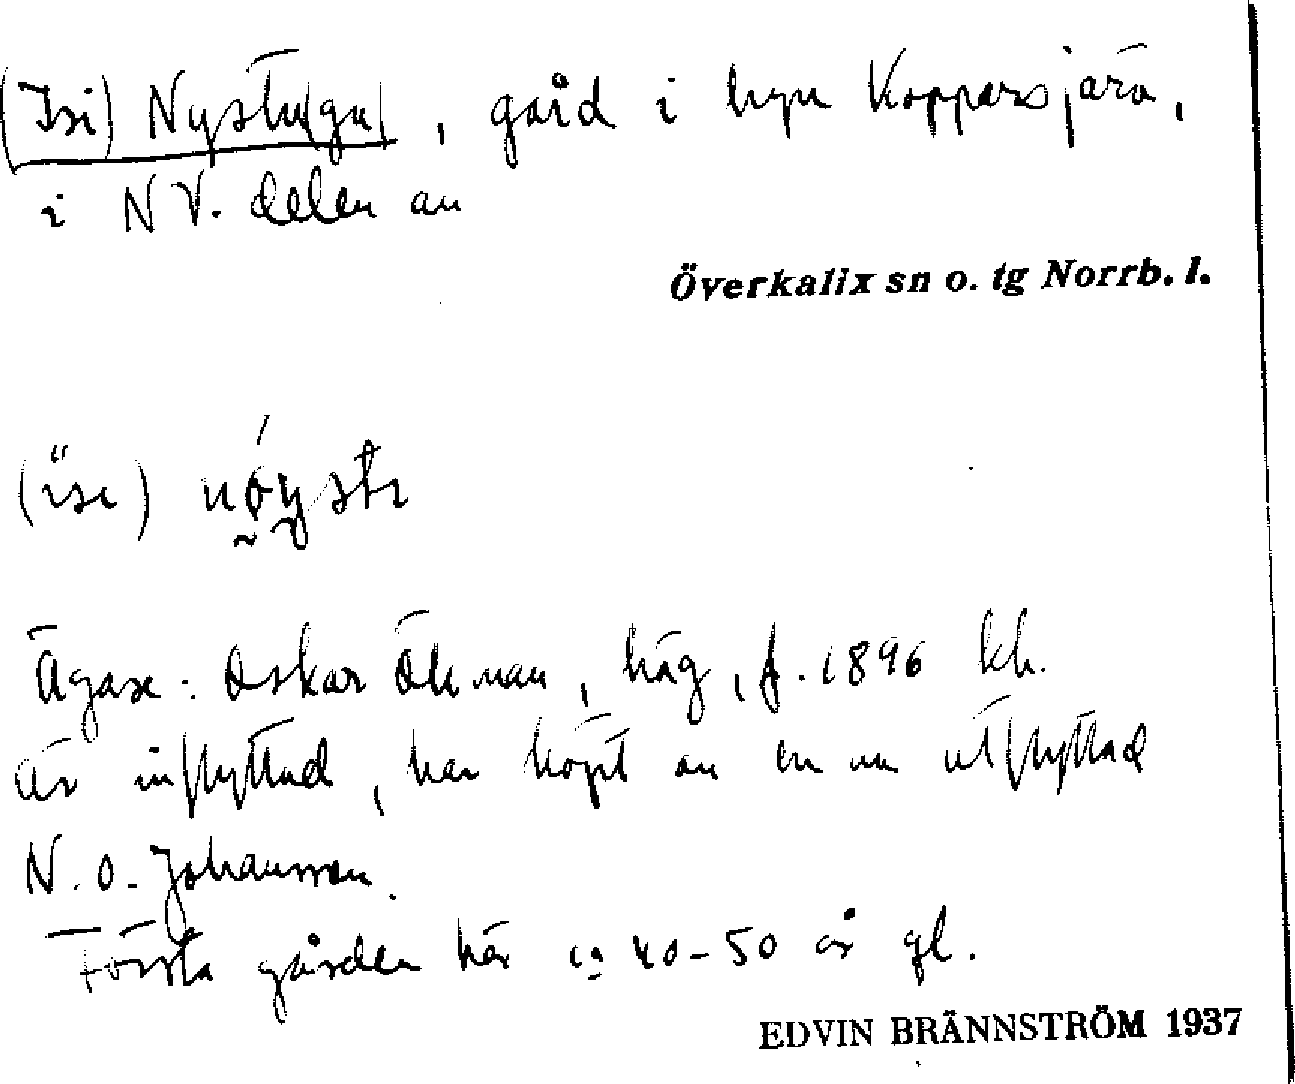 (Isi) Nystu(ga), gård i byn Koppars järv,
i NV. delen av
Överkalix sn o. tg Norrb. l.
Ägare: Oskar Öhman, häg, f. 1896 hh.
är inflyttad, har köpt av en nu utflyttad
N. O. Johansson.
Första gården här ca 40-50 år gl.
EDVIN BRÄNNSTRÖM 1937